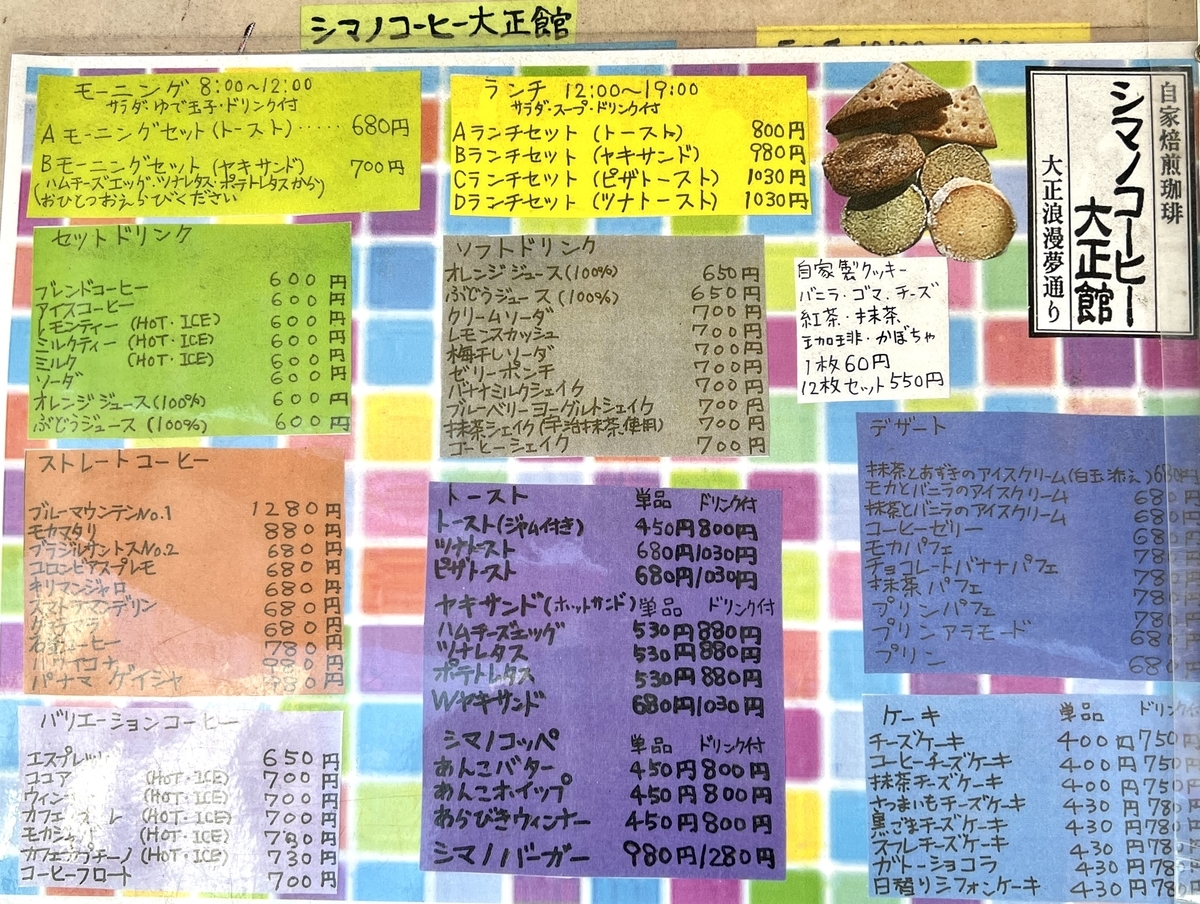 シマノコーヒー大正館
モーニング 8:00～12:00
サラダ・ゆで玉子・ドリンク付
Aモーニングセット(トースト)····· 680円
Bモーニングセット(ヤキサンド) 700円
(ハムチーズエッグ・ツナレタス・ポテトレタスから)
おひとつおえらびください
ランチ 12:00～19:00
サラダ・スープ・ドリンク付
Aランチセット (トースト) 800円
Bランチセット (ヤキサンド) 980円
Cランチセット (ピザトースト) 1030円
Dランチセット (ツナトースト) 1030円
自家焙煎珈琲
シマノコーヒー
大正館
大正浪漫夢通り
セットドリンク
ブレンドコーヒー 600円
アイスコーヒー 600円
レモンティー (HOT・ICE) 600円
ミルクティー (HOT・ICE) 600円
ミルク (HOT・ICE) 600円
ソーダ 600円
オレンジジュース(100%) 600円
ぶどうジュース (100%) 600円
ソフトドリンク
オレンジジュース(100%) 650円
ぶどうジュース (100%) 650円
クリームソーダ 700円
レモンスカッシュ 700円
梅干しソーダ 700円
ゼリーポンチ 700円
バナナミルクシェイク 700円
ブルーベリーヨーグルトシェイク 700円
抹茶シェイク(宇治抹茶使用) 700円
コーヒーシェイク 700円
自家製クッキー
バニラ・ゴマ、チーズ
紅茶・抹茶
珈琲・かぼちゃ
1枚60円
12枚セット550円
ストレートコーヒー
ブルーマウンテンNo.1 1280円
モカマタリ 880円
ブラジルサントスNo.2 680円
コロンビアスプレモ 680円
キリマンジャロ 680円
スマトラマンデリン 680円
680円
780円
ハワイコナ 980円
パナマ ゲイシャ 円
バリエーションコーヒー
エスプレッソ 650円
ココア (HOT・ICE) 700円
(HOT・ICE) 700円
カフェ (HOT・ICE) 700円
(HOT・ICE) 円
カフェカプチーノ(HOT・ICE) 730円
コーヒーフロート 700円
トースト 単品 ドリンク付
トースト(ジャム付き) 450円 800円
ツナトースト 680円/1030円
ピザトースト 680円/1030円
ヤキサンド(ホットサンド) 単品 ドリンク付
ハムチーズエッグ 530円 880円
ツナレタス 530円 880円
ポテトレタス 530円 880円
Wヤキサンド 680円/1030円
シマノコッペ 単品 ドリンク付
あんこバター 450円 800円
あんこホイップ 450円 800円
あらびきウィンナー 450円 800円
シマノバーガー 980円/1280円
デザート
抹茶とあずきのアイスクリーム(白玉添え) 680円
モカとバニラのアイスクリーム 680
抹茶とバニラのアイスクリーム 680
コーヒーゼリー 680
モカパフェ 780
チョコレートバナナパフェ 780
抹茶パフェ 780
プリンパフェ 780
プリンアラモード 680
プリン 680
ケーキ 単品 ドリンク
チーズケーキ 400円 750
コーヒーチーズケーキ 400円 750
抹茶チーズケーキ 400円 750
さつまいもチーズケーキ 430円 780
黒ごまチーズケーキ 430円 780
スフレチーズケーキ 430円 780
ガトーショコラ 430円 780
日替りシフォンケーキ 430円 780